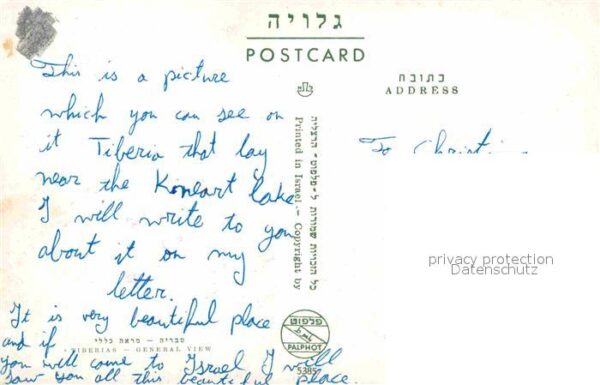 גלויה
POSTCARD
כתובת
ADDRESS
This is a picture
which you can see on
it Tiberia that lay
near the Kineart lake
I will write to you
about it on my
letter.
It is very beautiful place
and if
you will come to Israel I will
saw you all this beautiful place.
To
כל הזכויות שמורות ל-פלפוט - הרצליה
Printed in Israel - Copyright by
פלפוט
PALPHOT
5385
טבריה - מראה כללי
TIBERIAS - GENERAL VIEW
privacy protection
Datenschutz